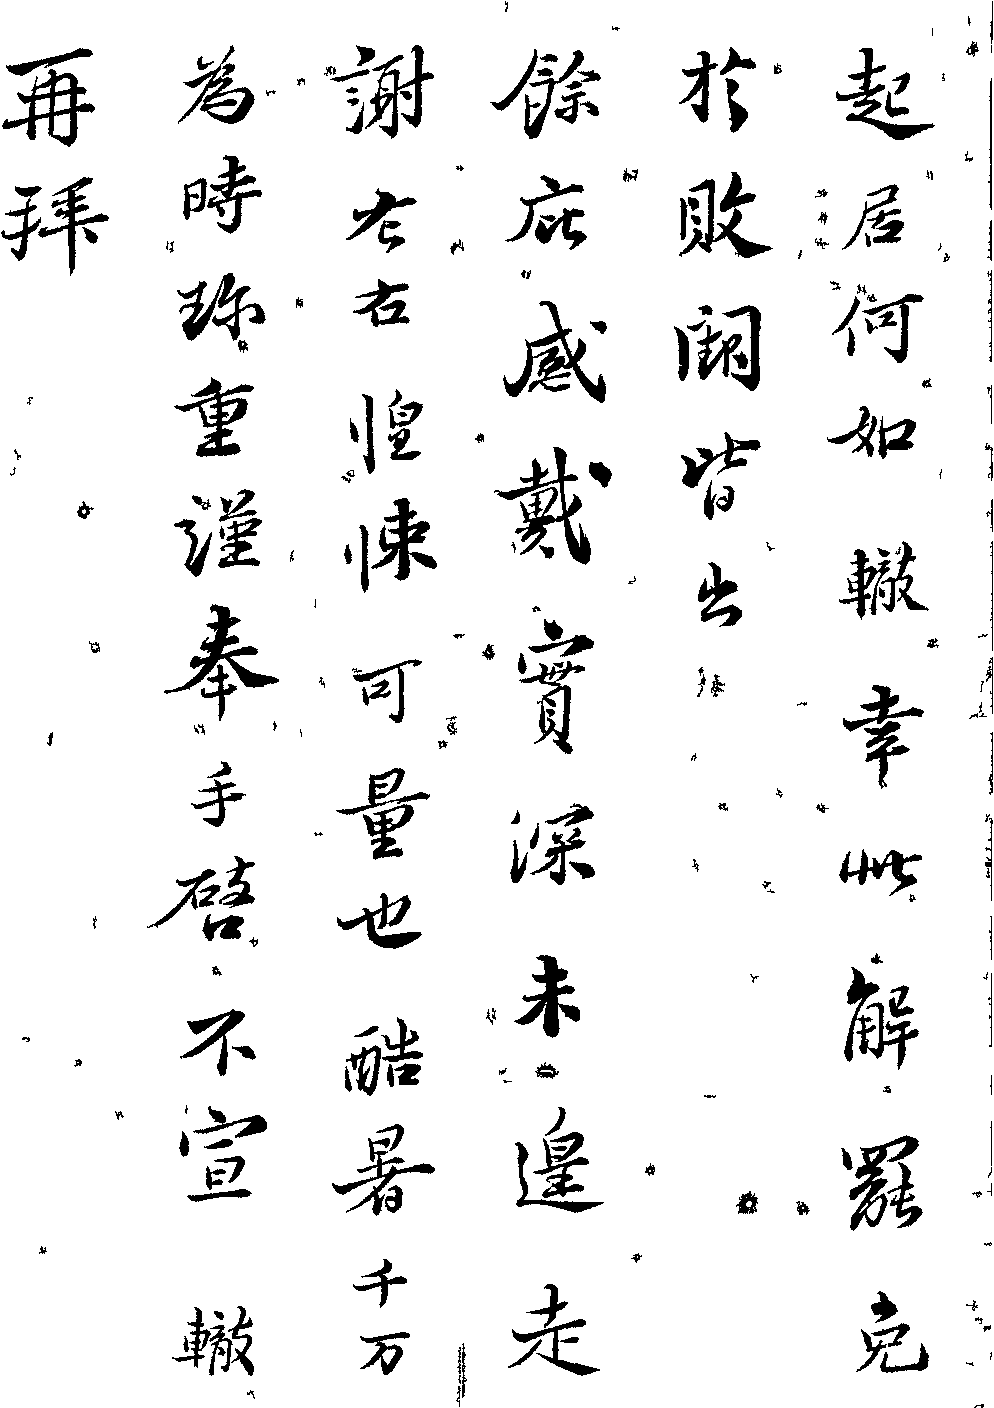 起居何如轍幸此解罷免
於敗闕皆出
餘庇感戴實深未遑走
謝左右惶悚可量也酷暑千万
為時珎重謹奉手啓不宣轍
再拜